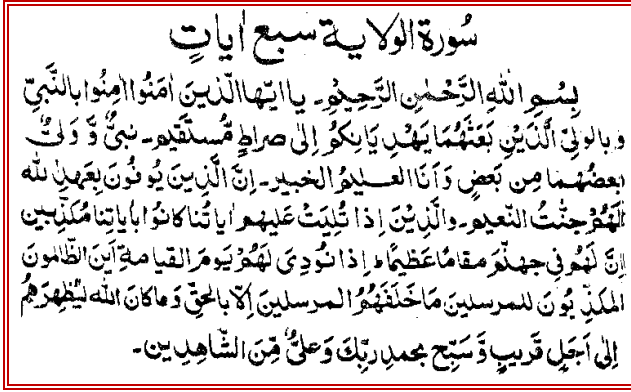 سُورة الولاية سبع اٰیاتٍ
بِسْمِ اللهِ الرَّحْمٰنِ الرَّحِيْمِ۔ يا ايّها الّذين اٰمَنُوا اٰمِنُوا بالنَّبِيِّ
وبالوليِّ الَّذَيْنِ بَعَثْهُمَا يَهْدِيَانِكُمُ إلىٰ صراطٍ مُّستَقيمٍ۔ نبيٌّ وَّ وَليٌّ
بعضُهما مِن بَعضٍ وَاَنَا العليمُ الخبير۔ اِنَّ الَّذِينَ يوُنُونَ بعَهدِ لله
لَهُمْ جنّٰتُ النّعيم۔ والَّذِيْنَ اِذا تُلِيَتْ عَليهم اٰياتُنا كانُوا بِاٰياتِنا مُكَذِّبين
اِنَّ لَهُم فِى جهنّمَ مقامًا عَظيمًا ءاِذا نُودِىَ لَهُمْ يَومَ القِيامةِ اَينَ الظّالمونَ
المكذِّبُونَ للمرسلينَ مَا خَلَفَهُمُ المرسلينَ اِلّا بالحقِّ وَما كانَ الله ليُظهِرَهُم
اِلىٰ اَجَلٍ قَريبٍ وَّسَبِّح بحمدِ ربِّكَ وَعَلىٌّ مِّنَ الشّاهِدين۔